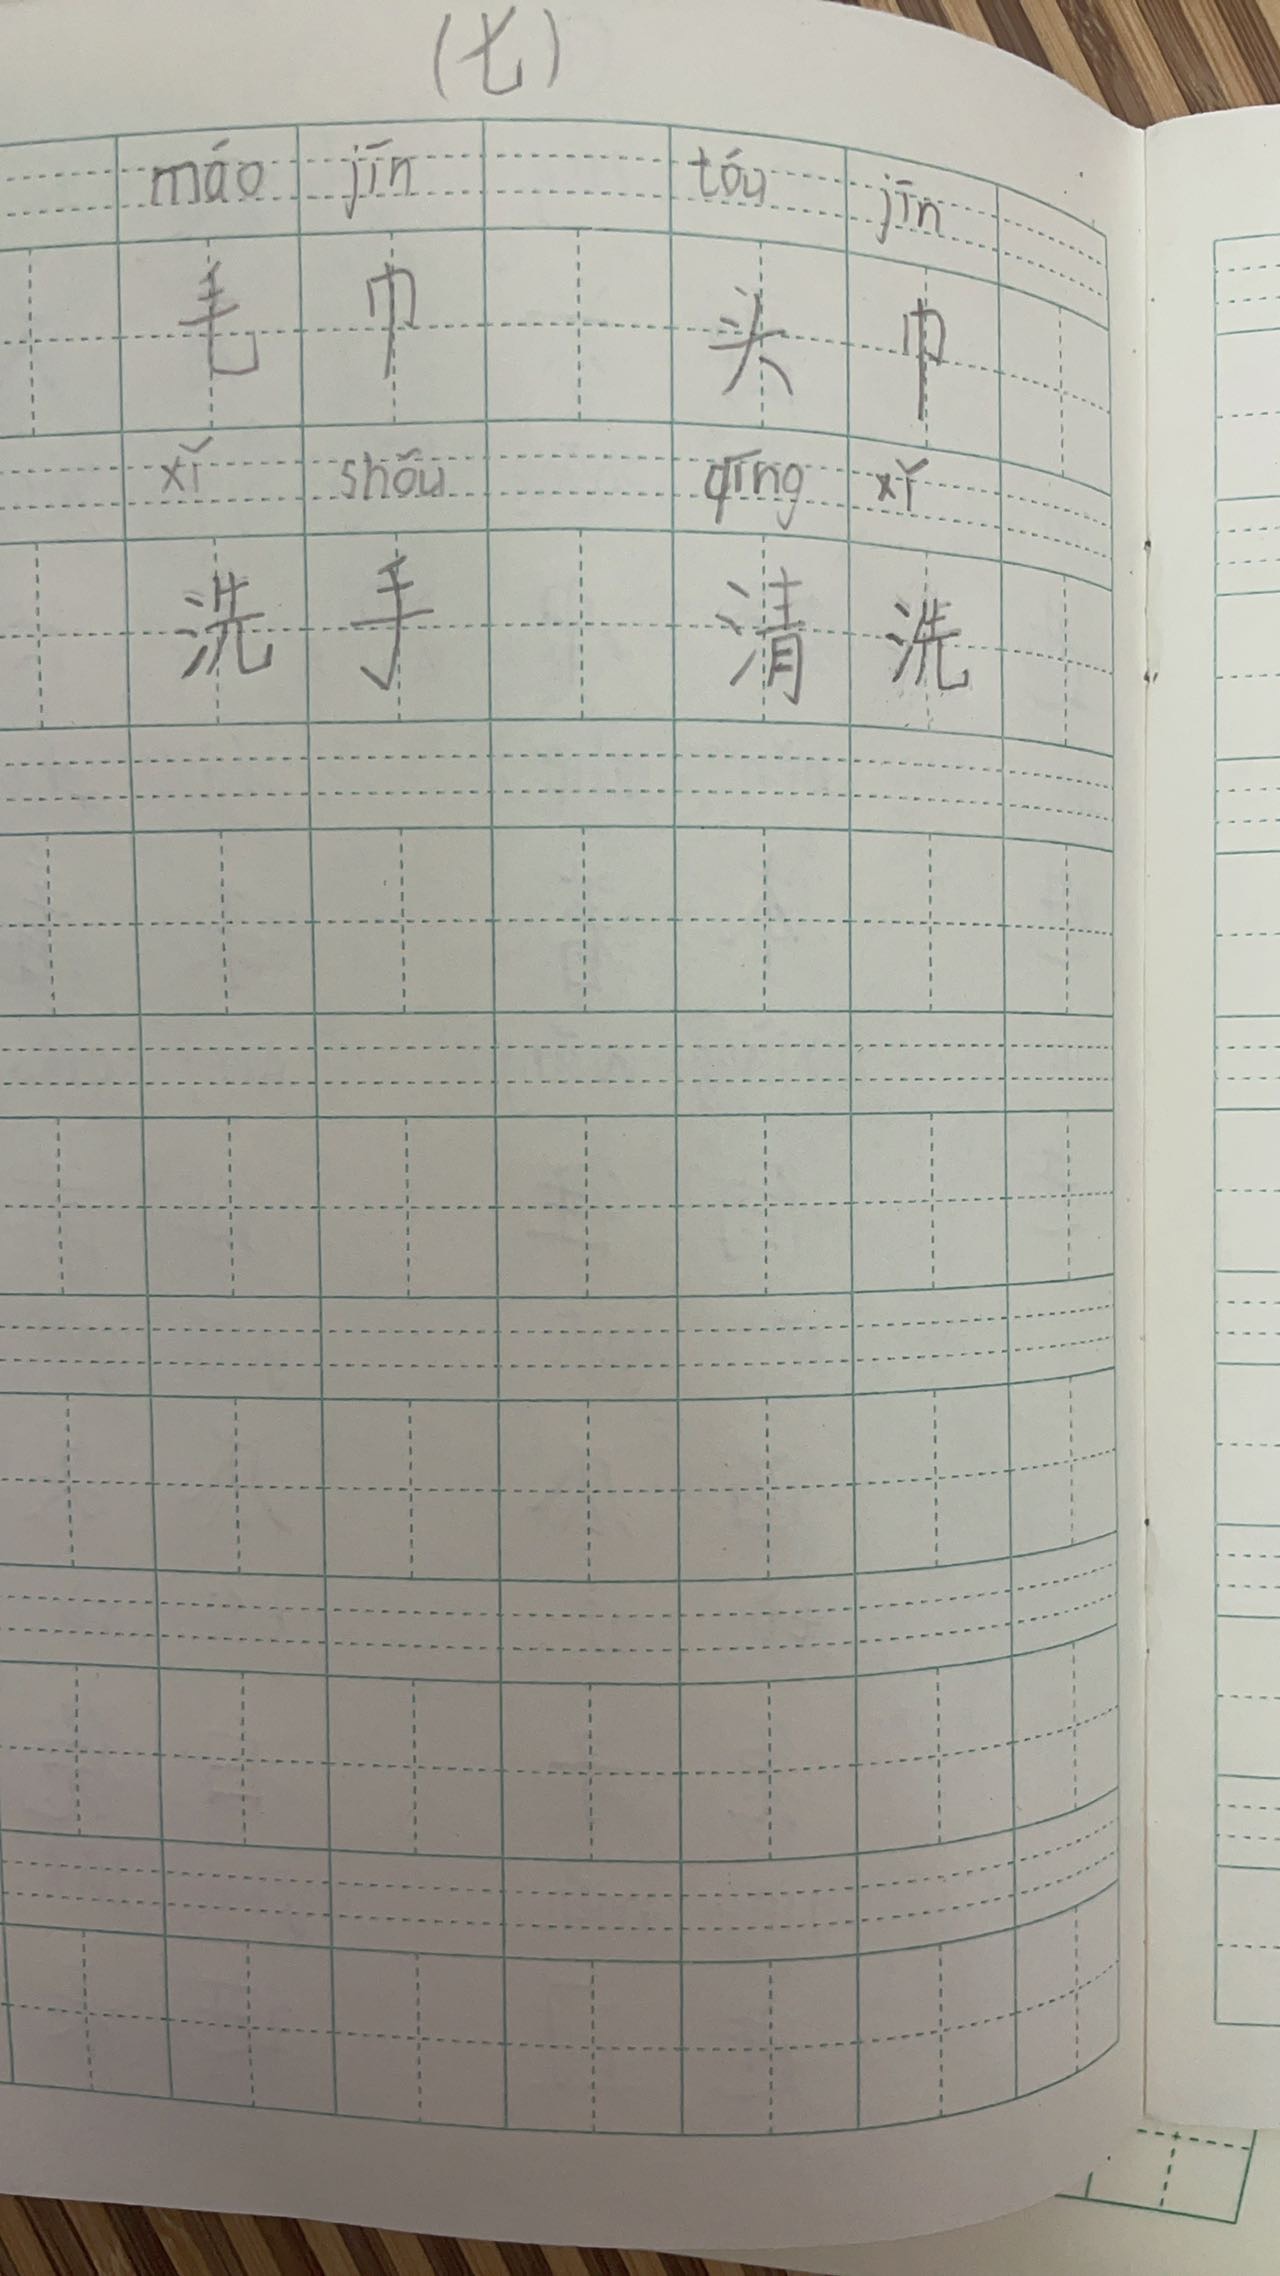 (七)
máo jīn tóu jīn
毛巾 头巾
xǐ shǒu qīng xǐ
洗手 清洗